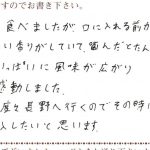 すのでお書き下さい。
食べましたが、口に入れる前か
い香りがしていて噛んだとたん
いっぱいに風味が広がり
動しました。
度々長野へ行くのでその時に
入したいと思います